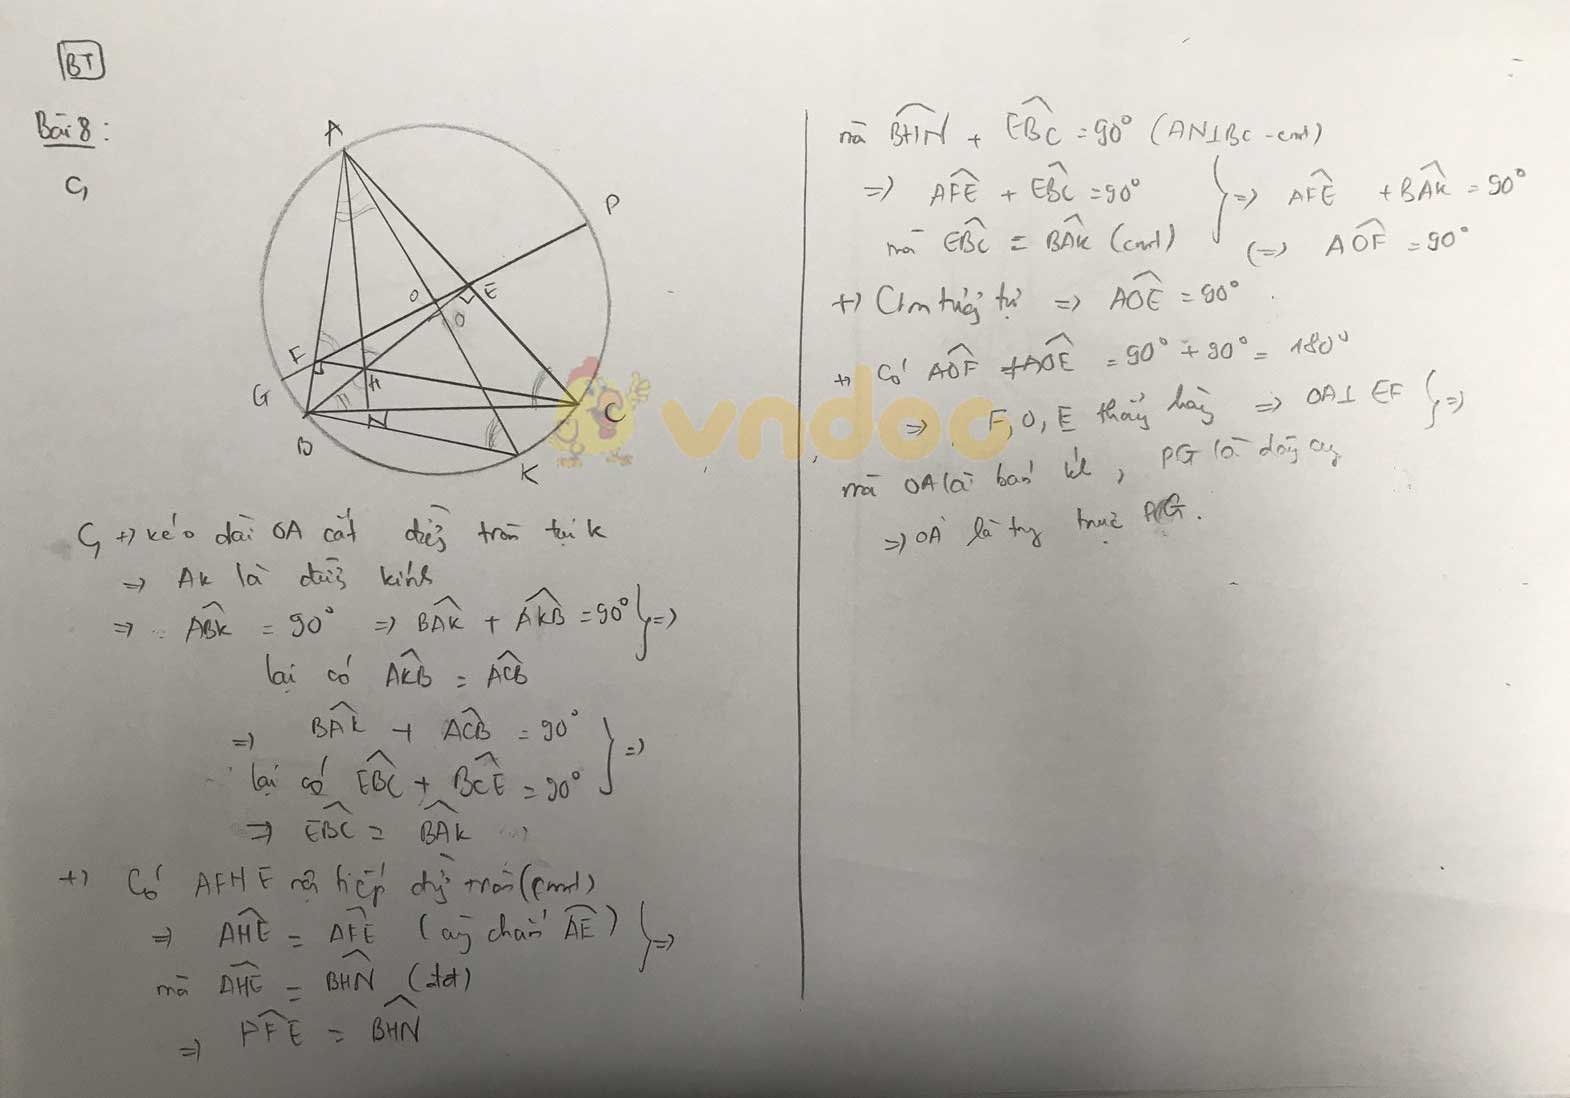 BT
Bài 8:
c,
A
P
O
E
O
F
G
H
B
N
C
K
vndoc
c, +) kéo dài OA cắt đường tròn tại K
=> AK là đường kính
=> ABK = 90° => BAK + AKB = 90° } =>
lại có AKB = ACB
=> BAK + ACB = 90°
lại có EBC + BCE = 90° } =>
=> EBC = BAK
+) Có AFHE nội tiếp đường tròn (cmt)
=> AHE = AFE (cùng chắn AE) } =>
mà AHE = BHN (đđ)
=> AFE = BHN
mà BHN + EBC = 90° (AN⊥BC - cmt)
=> AFE + EBC = 90° } => AFE + BAK = 90°
mà EBC = BAK (cmt) (=> AOF = 90°
+) Cm tương tự => AOE = 90°.
+) Có AOF + AOE = 90° + 90° = 180°
=> F, O, E thẳng hàng => OA⊥EF } =>
mà OA là bán kính, PG là dây cung
=> OA là trung trực PG.